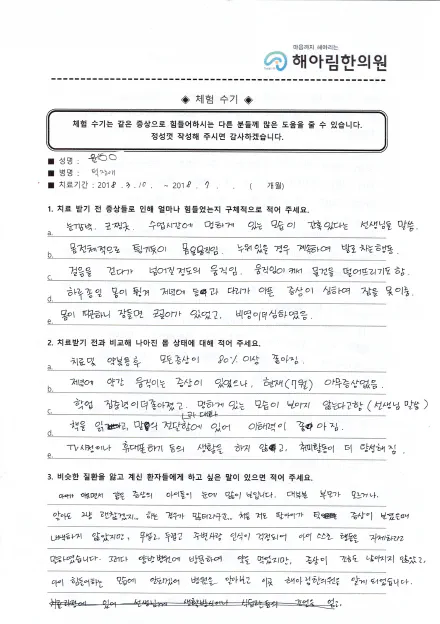 마음까지 헤아리는
해아림한의원
◈ 체험 수기 ◈
체험 수기는 같은 증상으로 힘들어하시는 다른 분들께 많은 도움을 줄 수 있습니다.
정성껏 작성해 주시면 감사하겠습니다.
■ 성명 : 윤○○
■ 병명 : 틱장애
■ 치료기간 : 2018 . 3. 10. ~ 2018 . 7 . . ( 개월)
1. 치료 받기 전 증상들로 인해 얼마나 힘들었는지 구체적으로 적어 주세요.
a. 눈깜박, 수업시간에 멍하게 있는 모습이 간혹있다는 선생님들 말씀.
b. 몸전체적으로 튕기듯이 움직임. 누워있을 경우 계속하여 발로 차는행동.
c. 걸음을 걷다가 넘어질정도의 움직임. 움직임이 커서 물건을 떨어뜨리기도 함.
d. 하루종일 몸이 튕겨 저녁에 팔과 다리가 아픈 증상이 심하여 잠을 못이룸.
e. 몸이 피곤하니 잠들면 코골이가 있었고, 비염이더심하였음.
2. 치료받기 전과 비교해 나아진 몸 상태에 대해 적어 주세요.
a. 치료및 약복용후 모든증상이 80% 이상 좋아짐.
b. 저녁에 약간 움직이는 증상이 있었으나, 현재(7월) 아무증상없음.
c. 학업 집중력이더좋아졌고. 멍하게 있는 모습이 보이지 않는다고함 (선생님 말씀)
d. 책을 읽고, 말의 전달함에 있어 이해력이 좋아 짐.
e. TV시청이나 휴대폰하기 등의 생활을 하지 않고, 취미활동이 더 왕성해 짐.
3. 비슷한 질환을 앓고 계신 환자들에게 하고 싶은 말이 있으면 적어 주세요.
같은 증상의 아이들이 눈에 많이 보입니다. 대부분 부모가 모르거나,
알아도 그냥 괜찮겠지.. 하는 경우가 많더라구요.. 처음 저도 증상이 보였을때
내색하지 않았지만, 무섭고 두렵고 주변사람 인식이 걱정되어 아이 스스로 행동을 자제하라고
말하였습니다. 그러다 양방병원에 방문하여 약을 먹었지만, 증상이 조금도 나아지지 않았고,
아이 힘들어하는 모습에 병원을 알아보고 지금 해아림한의원을 알게 되었습니다.
치료과정에 있어 선생님께 생활방식이나 식습관등의 조언을 얻고